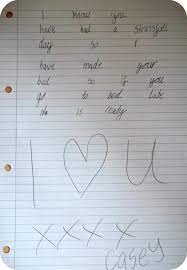 I know you
have had a stressfull
day so I
have made your
bed so if you
get to bed late
its ready
I ♡ U
x x x x
Casey